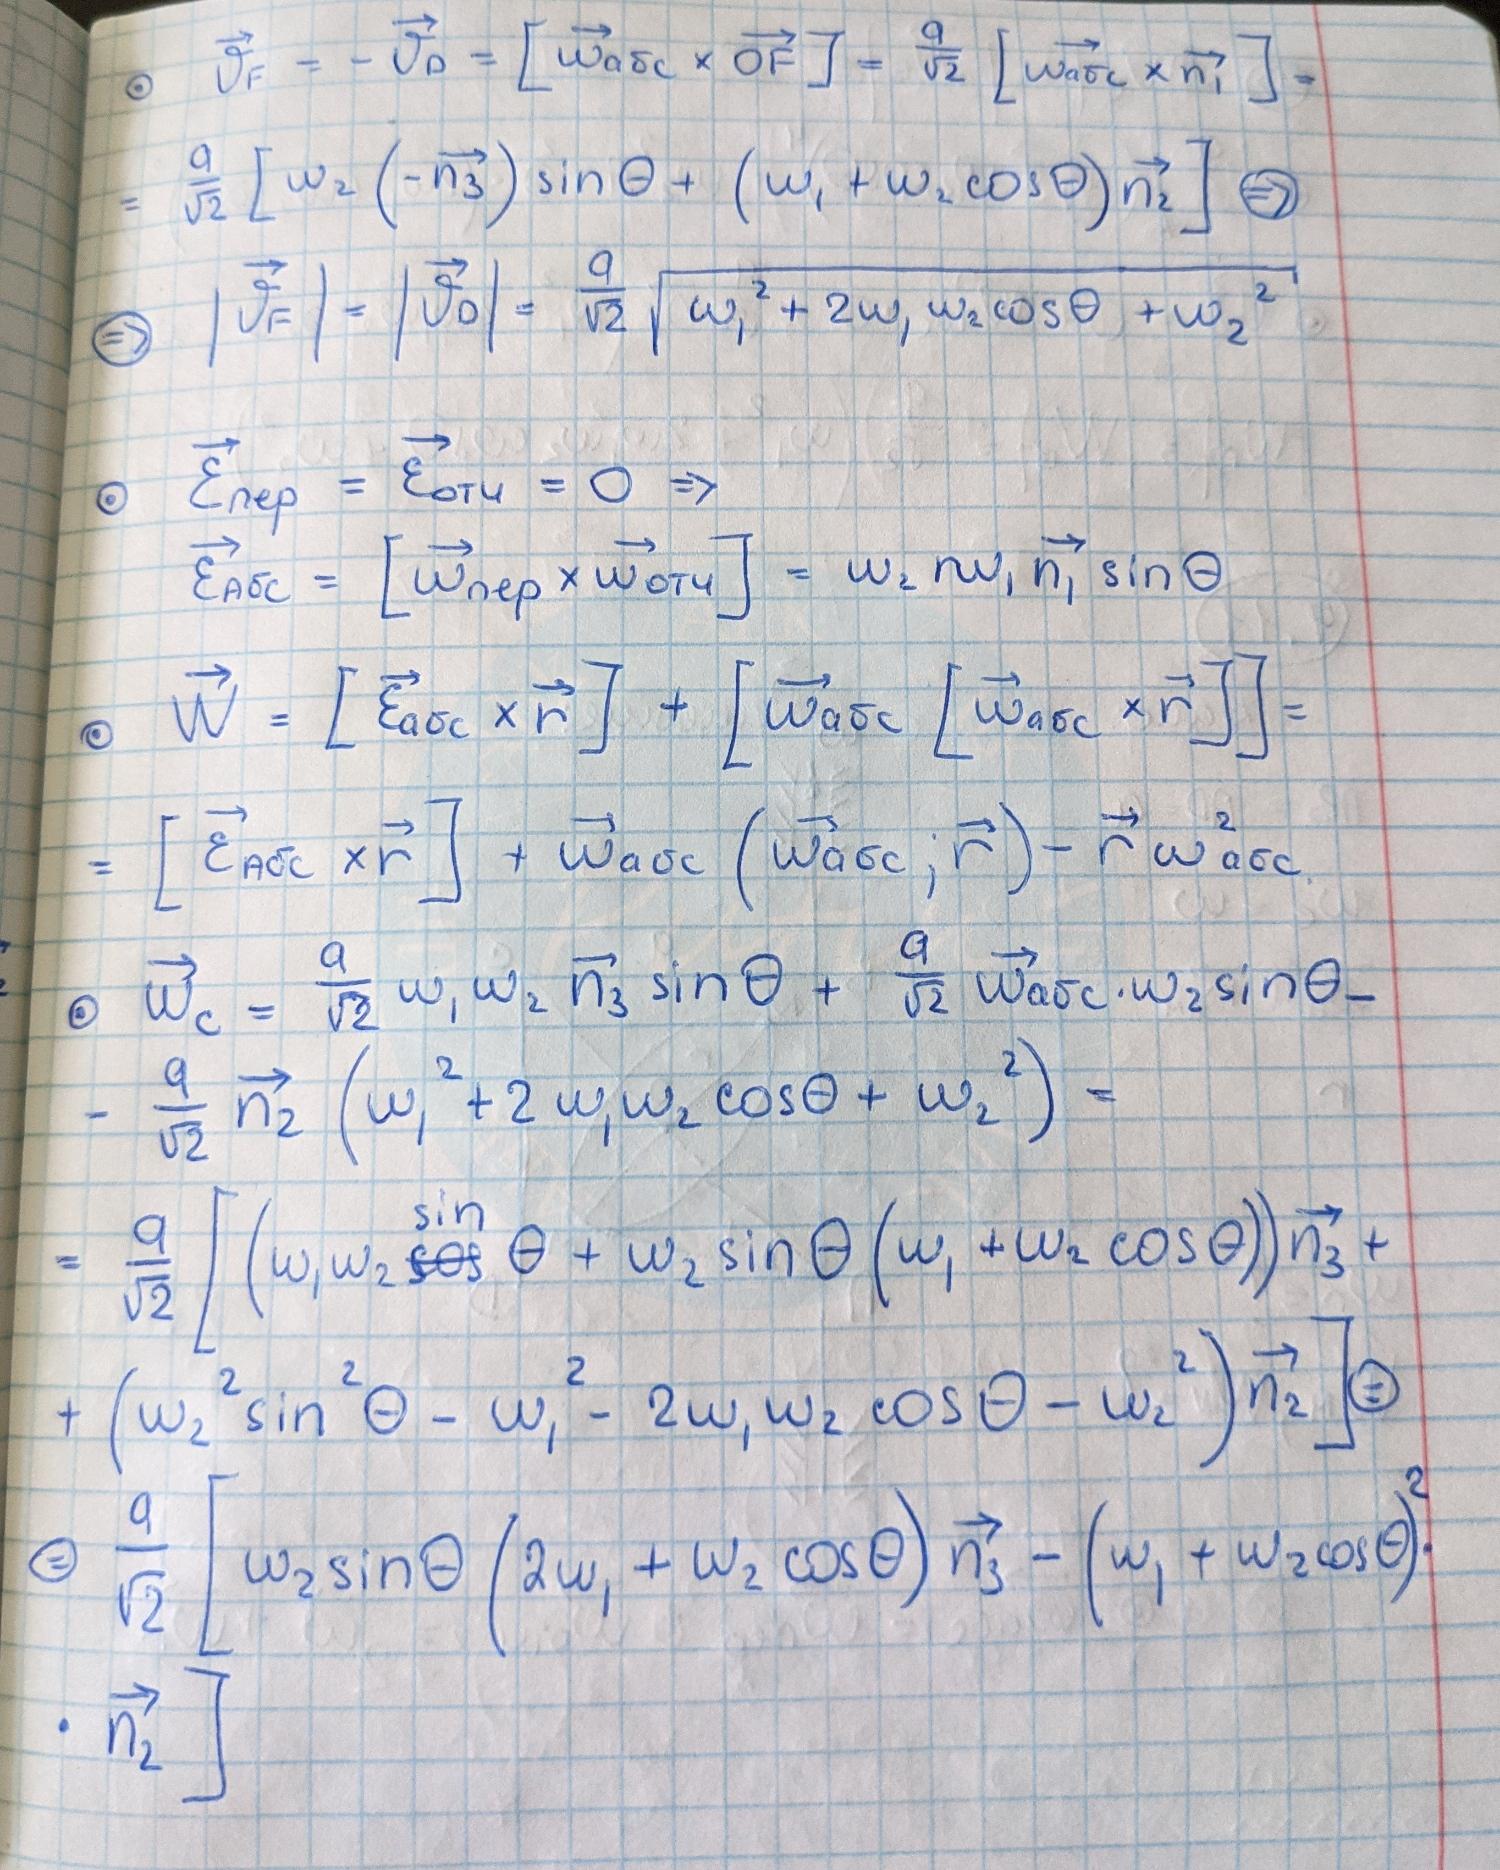 ⊙ v⃗_F = - v⃗_D = [ω⃗абс × OF⃗] = a/√2 [ω⃗абс × n⃗₁] =
= a/√2 [ω₂ (-n⃗₃) sinθ + (ω₁ + ω₂ cosθ) n⃗₂] ⇒
⇒ |v⃗_F| = |v⃗_D| = a/√2 √(ω₁² + 2ω₁ω₂cosθ + ω₂²)
⊙ ε⃗пер = ε⃗отн = 0 ⇒
ε⃗Абс = [ω⃗пер × ω⃗отн] = ω₂ ω₁ n⃗₁ sinθ
⊙ W⃗ = [ε⃗абс × r⃗] + [ω⃗абс [ω⃗абс × r⃗]] =
= [ε⃗Абс × r⃗] + ω⃗абс (ω⃗абс ; r⃗) - r⃗ ω²абс.
⊙ w⃗_c = a/√2 ω₁ω₂ n⃗₃ sinθ + a/√2 ω⃗абс·ω₂ sinθ -
- a/√2 n⃗₂ (ω₁² + 2ω₁ω₂ cosθ + ω₂²) =
= a/√2 [(ω₁ω₂ sin θ + ω₂ sinθ (ω₁ + ω₂ cosθ)) n⃗₃ +
+ (ω₂² sin²θ - ω₁² - 2ω₁ω₂ cosθ - ω₂²) n⃗₂] =
= a/√2 [ω₂ sinθ (2ω₁ + ω₂ cosθ) n⃗₃ - (ω₁ + ω₂ cosθ)² ·
· n⃗₂]